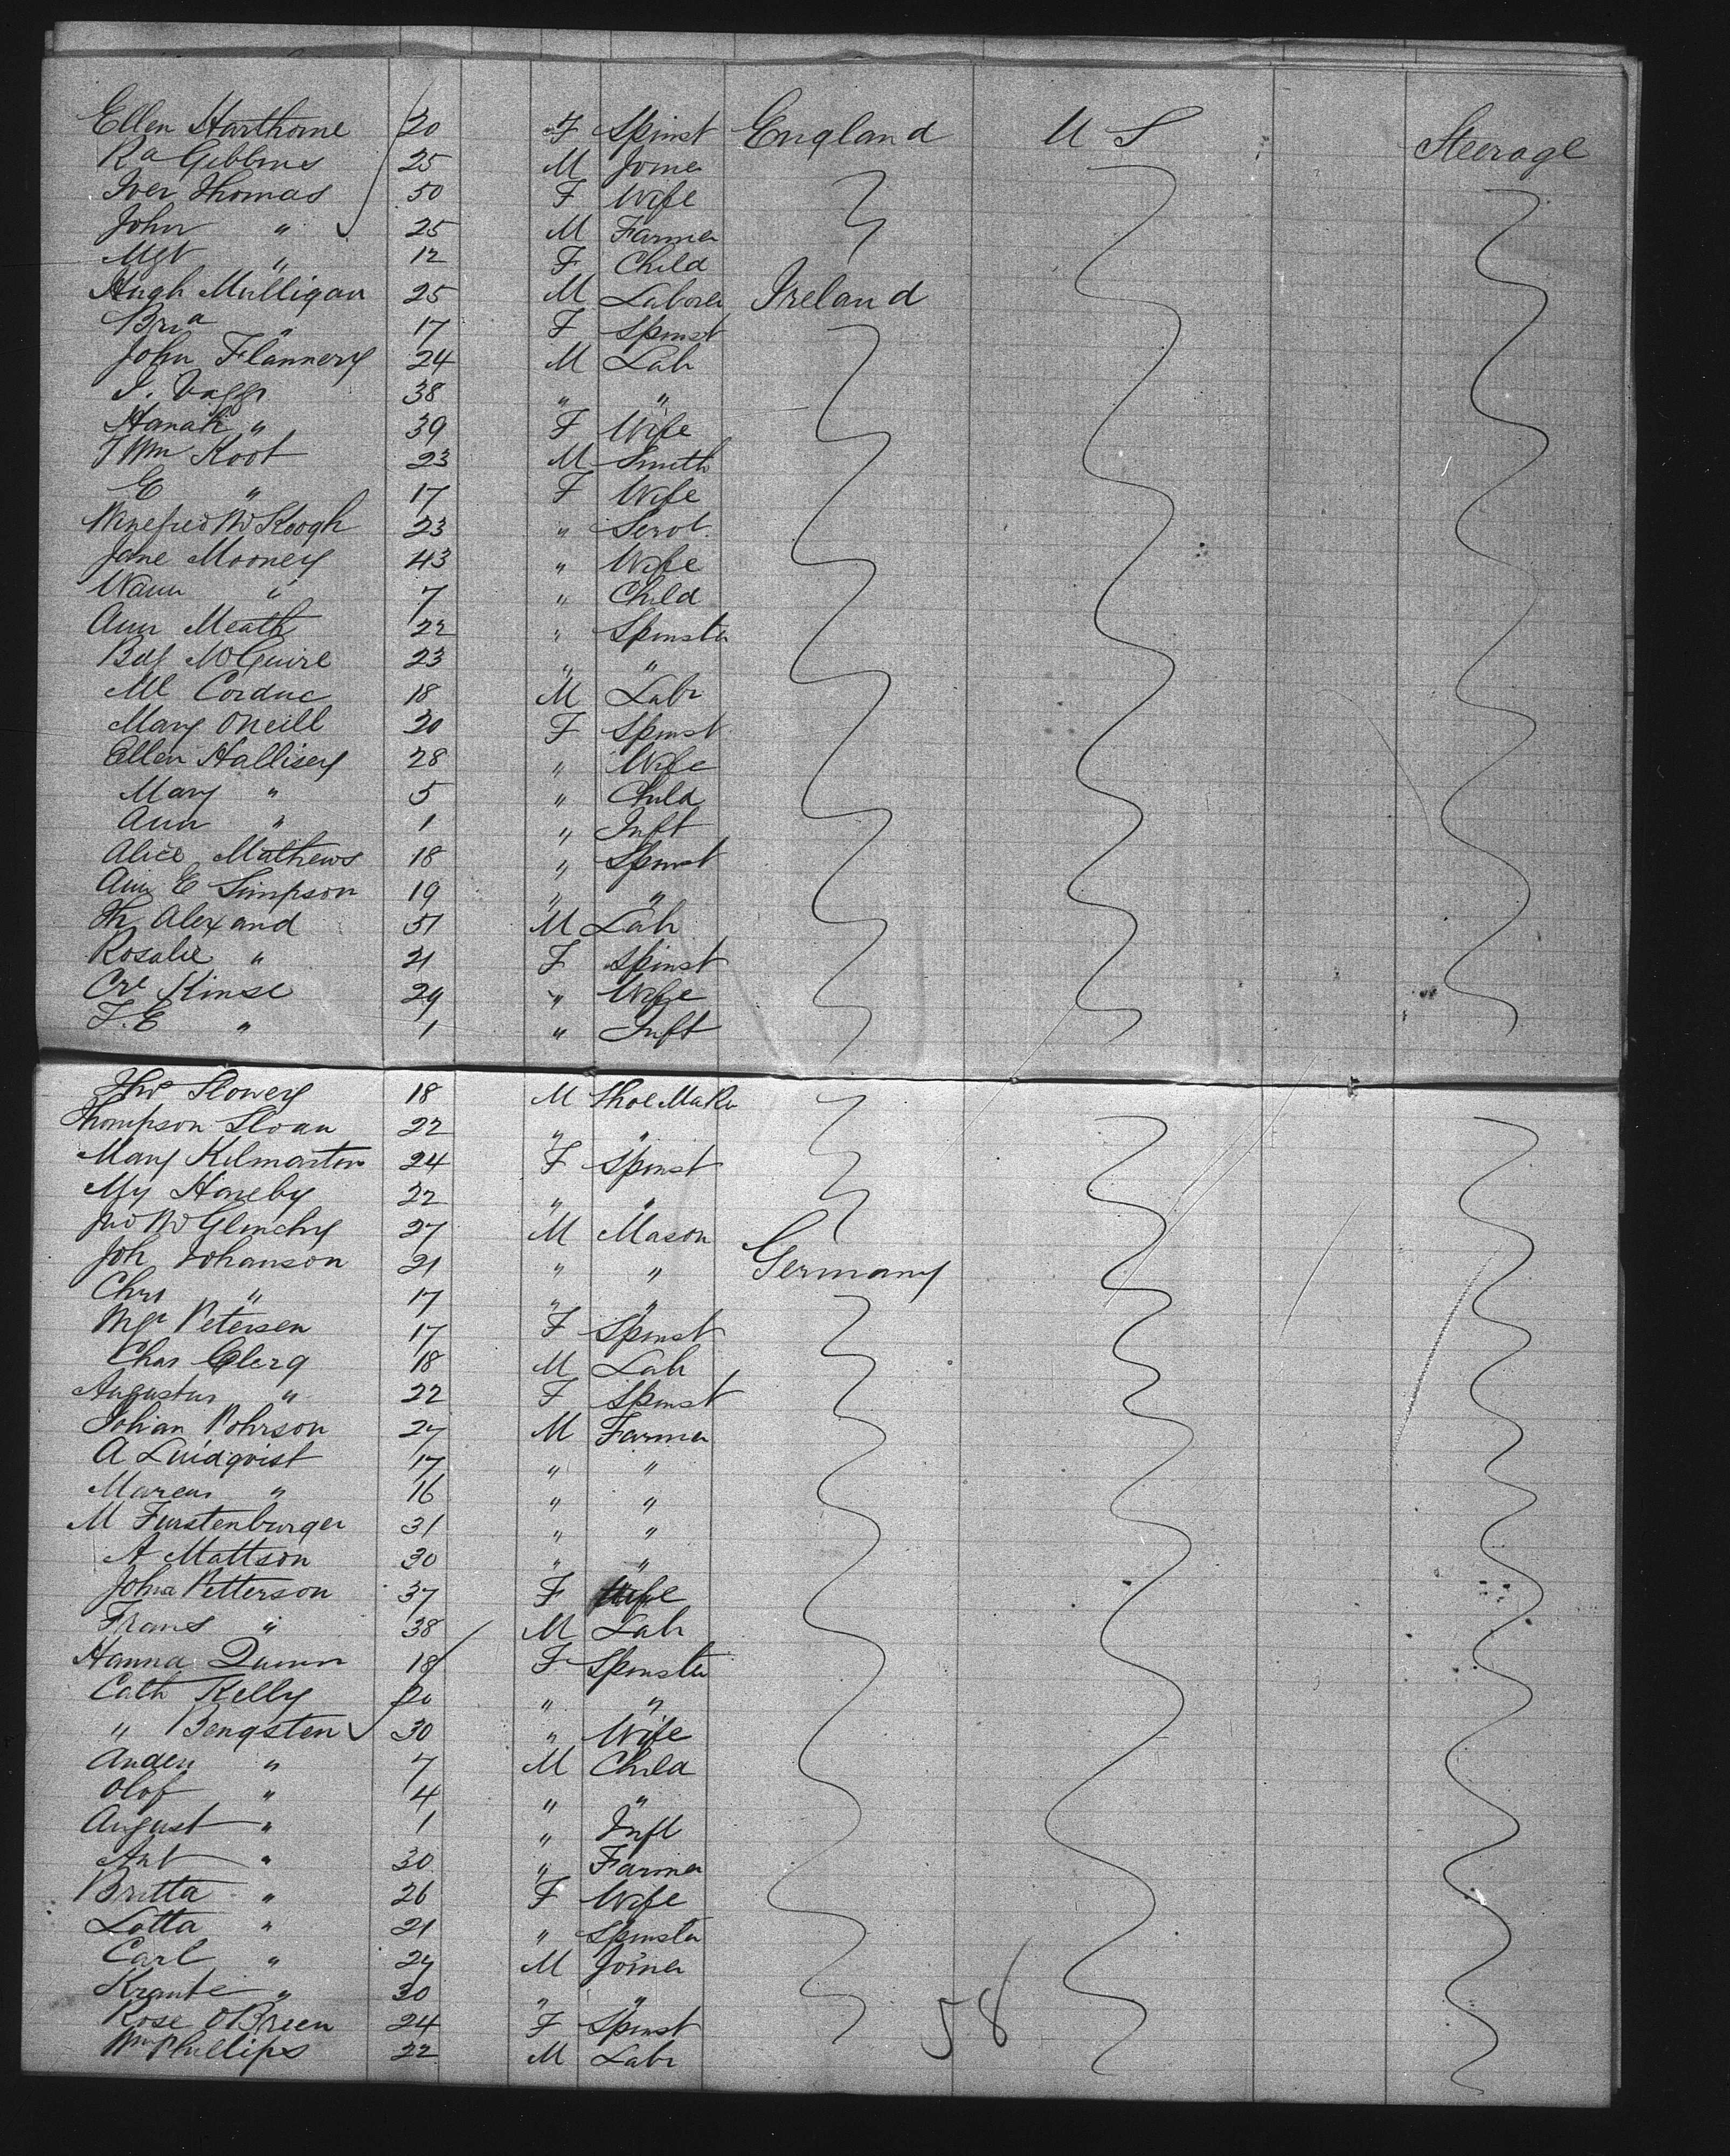 Ellen Harthorne 20 F Spinst England U S Steerage
Ra Gibbins 25 M Joiner
Iver Thomas 50 F Wife
John " 25 M Farmer
Mgt " 12 F Child
Hugh Mulligan 25 M Laborer Ireland
Bria " 17 F Spinst
John Flannery 24 M Labr
38 " "
Hanah " 39 F Wife
Wm Root 23 M Smith
E " 17 F Wife
Winefred McKeogh 23 " Servt
Jane Mooney 43 " Wife
" 7 " Child
Ann Meath 22 " Spinster
Bdg McGuire 23 " "
Ml Corduc 18 M Labr
Mary ONeill 20 F Spinst
Ellen Hallisey 28 " Wife
Mary " 5 " Child
Ann " 1 " Inft
Alice Mathews 18 " Spinst
Ann E Simpson 19 " "
Th Alexand 51 M Labr
Rosalie " 21 F Spinst
Cre Kinse 29 " Wife
F. E " 1 " Inft
Thos Slowey 18 M Shoe Maker
Thompson Sloan 22 " "
Mary Kilmartin 24 F Spinst
My Haneby 22 " "
Jno McGlinchy 27 M Mason
Joh Johanson 21 " " Germany
Chrs " 17 " "
Mgt Petersen 17 F Spinst
Chas Clerq 18 M Labr
Augustus " 22 F Spinst
Johan Pohrson 27 M Farmer
A Lindqvist 17 " "
Marcus " 16 " "
M Furstenburger 31 " "
A Mattson 30 " "
Joha Petterson 37 F Wife
Frans " 38 M Labr
Hanna Quinn 18 F Spinster
Cath Kelly 20 " "
" Bengsten 30 " Wife
Anders " 7 M Child
Olof " 4 " "
August " 1 " Inft
" 30 " Farmer
Britta " 26 F Wife
Lotta " 21 " Spinster
Carl " 24 M Joiner
" 30 " "
Rose OBreen 24 F Spinst
Wm Phillips 22 M Labr
58